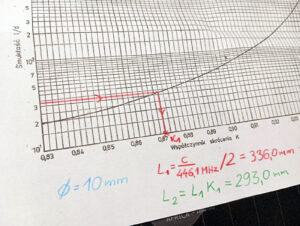 Smukłość l/d
10³
5
4
3
2
10²
5
4
3
2
10¹
0,83 0,84 0,85 0,86 0,87 0,88 0,89 0,90 0,91
K₁
Współczynnik skrócenia K
ϕ = 10mm
L₁ = C / 446,1 MHz /2 = 336,0mm
L₂ = L₁ K₁ = 293,0mm
AFRICA